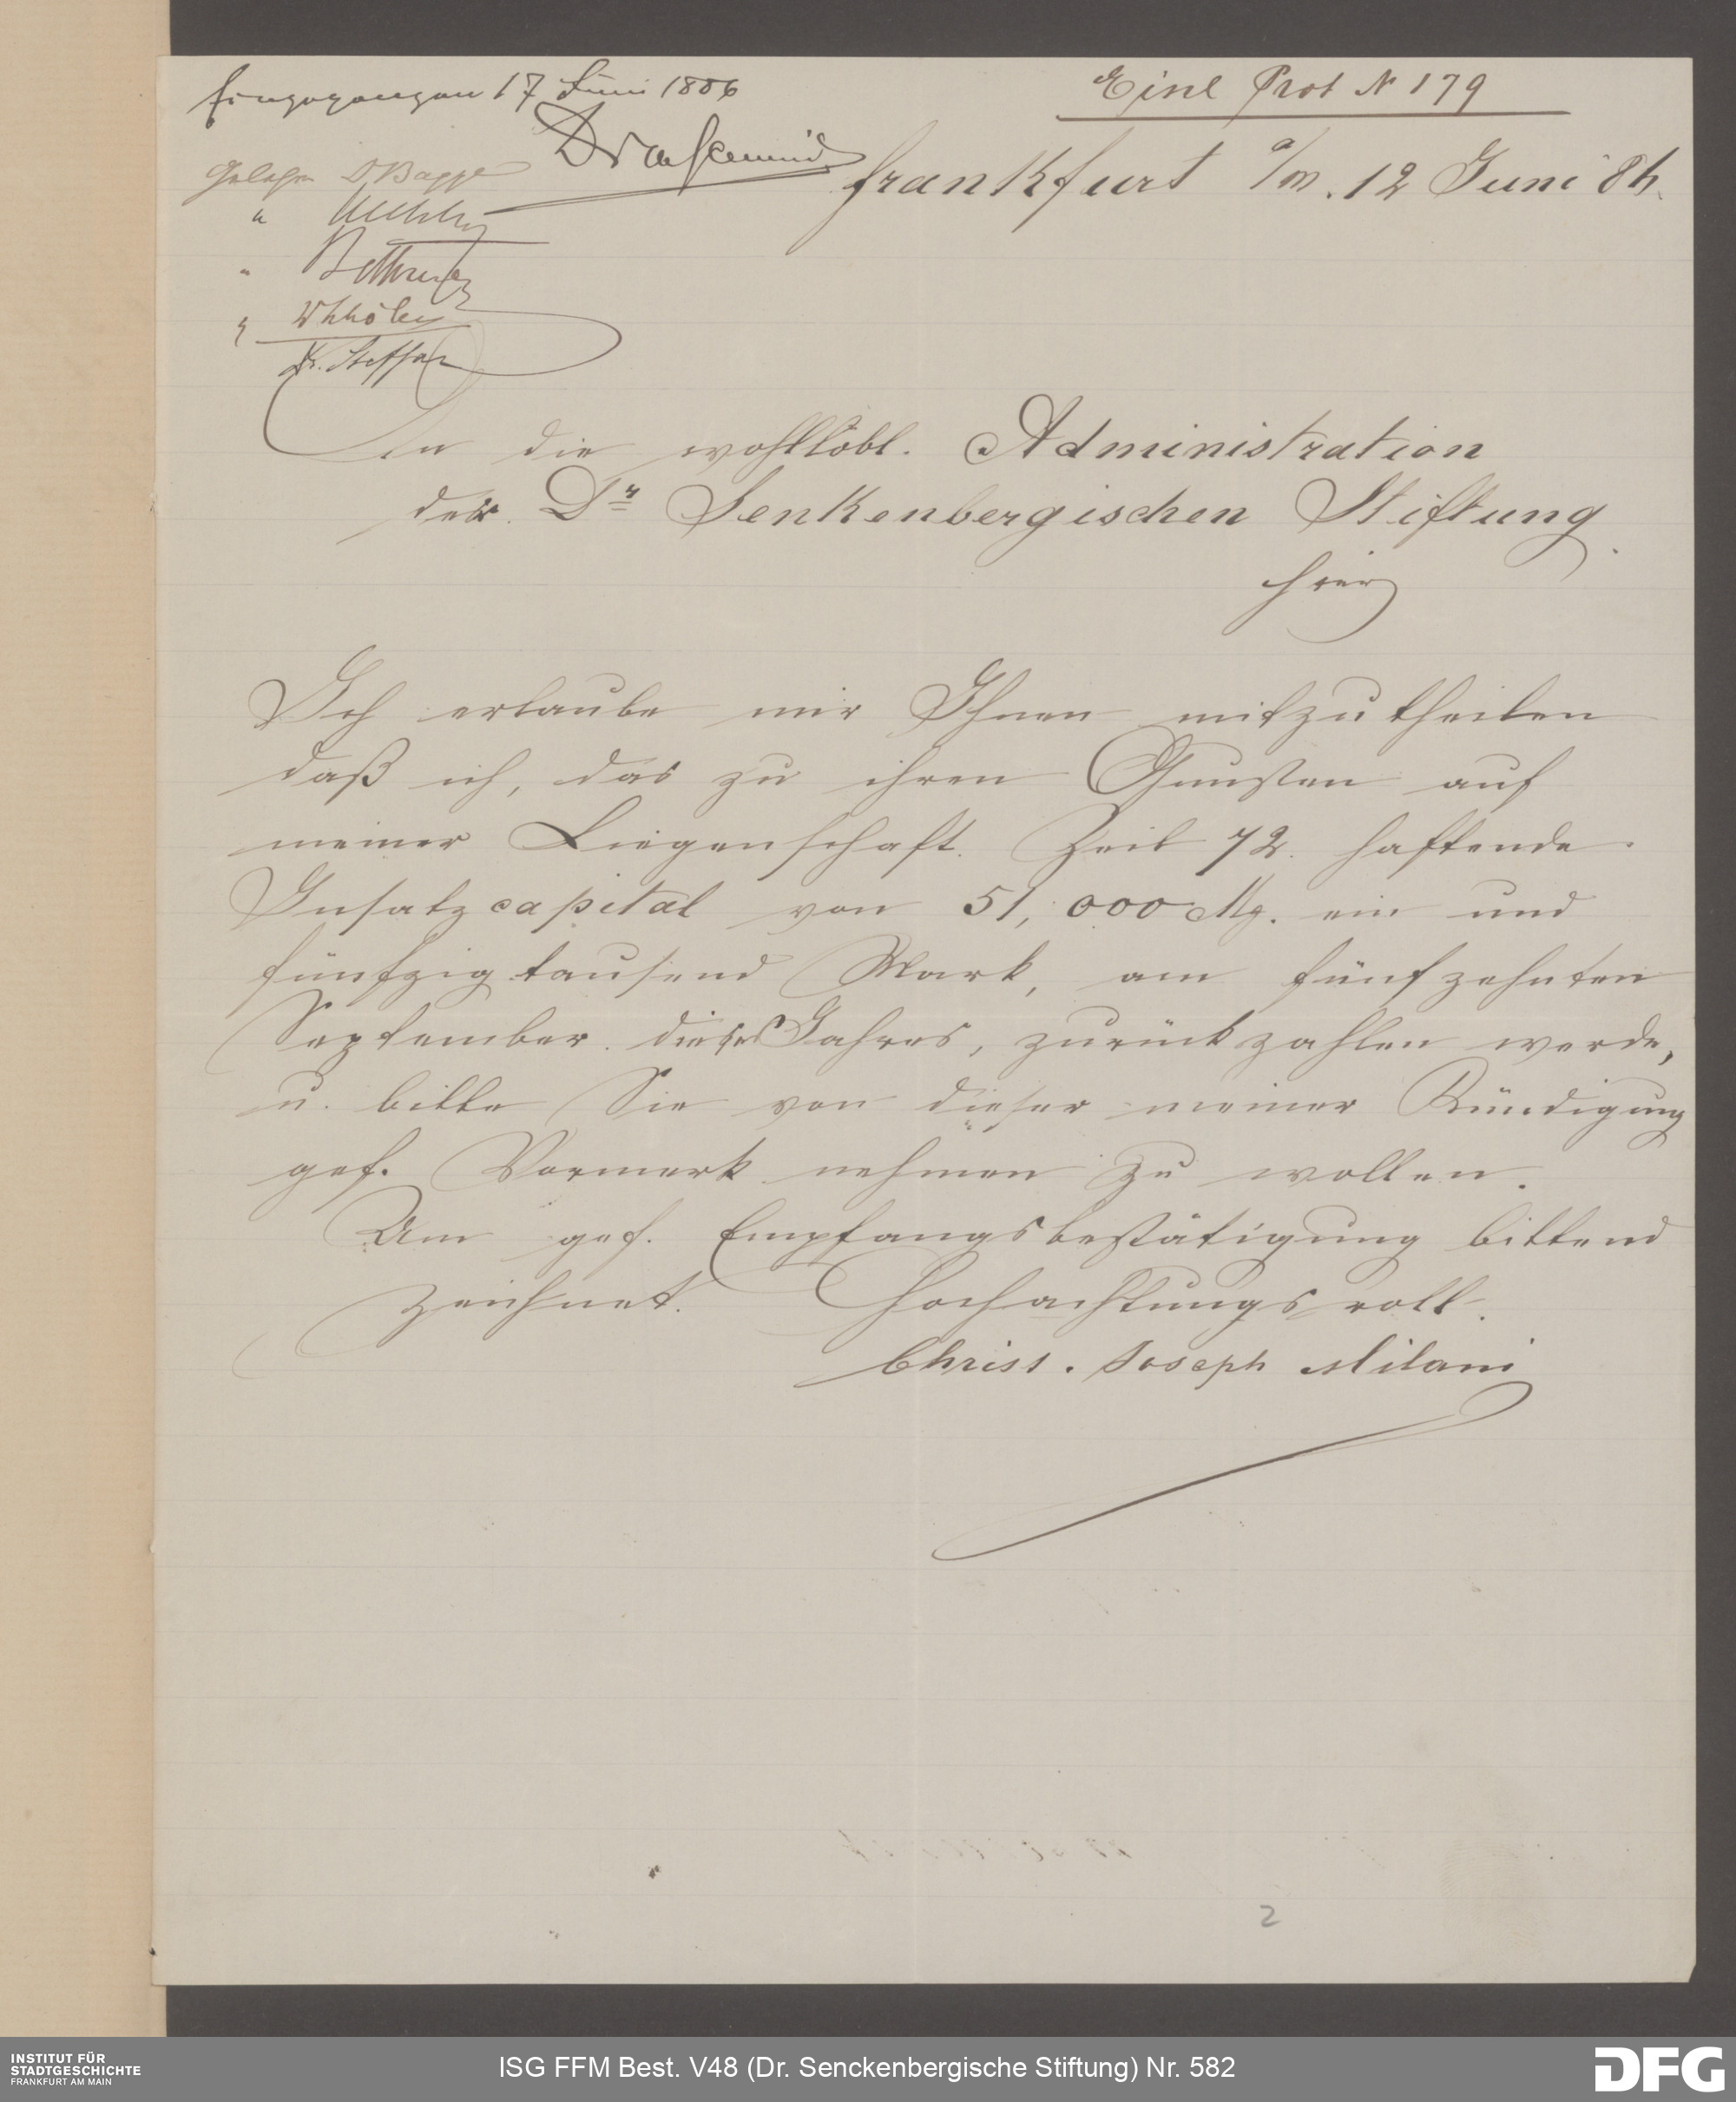 Eingegangen 17 Juni 1886
Einl Prot N 179
Gelesen DBagge
Frankfurt a/M. 12 Juni 86.
"
"
"
Dr. Steffan
An die wohllöbl. Administration
der Dr Senkenbergischen Stiftung.
hier
Ich erlaube mir Ihnen mitzutheilen
daß ich, das zu ihren Gunsten auf
meiner Liegenschaft. Zeil 72. haftende
Insatzcapital von 51,000 Mg. ein und
fünfzigtausend Mark, am fünfzehnten
September. dieses Jahres, zurückzahlen werde,
u. bitte Sie von dieser meiner Kündigung
gef. Vormerk nehmen zu wollen.
Um gef. Empfangsbestätigung bittend
zeichnet. Hochachtungsvoll.
Christ. Joseph Milani
2
INSTITUT FÜR
STADTGESCHICHTE
FRANKFURT AM MAIN
ISG FFM Best. V48 (Dr. Senckenbergische Stiftung) Nr. 582
DFG